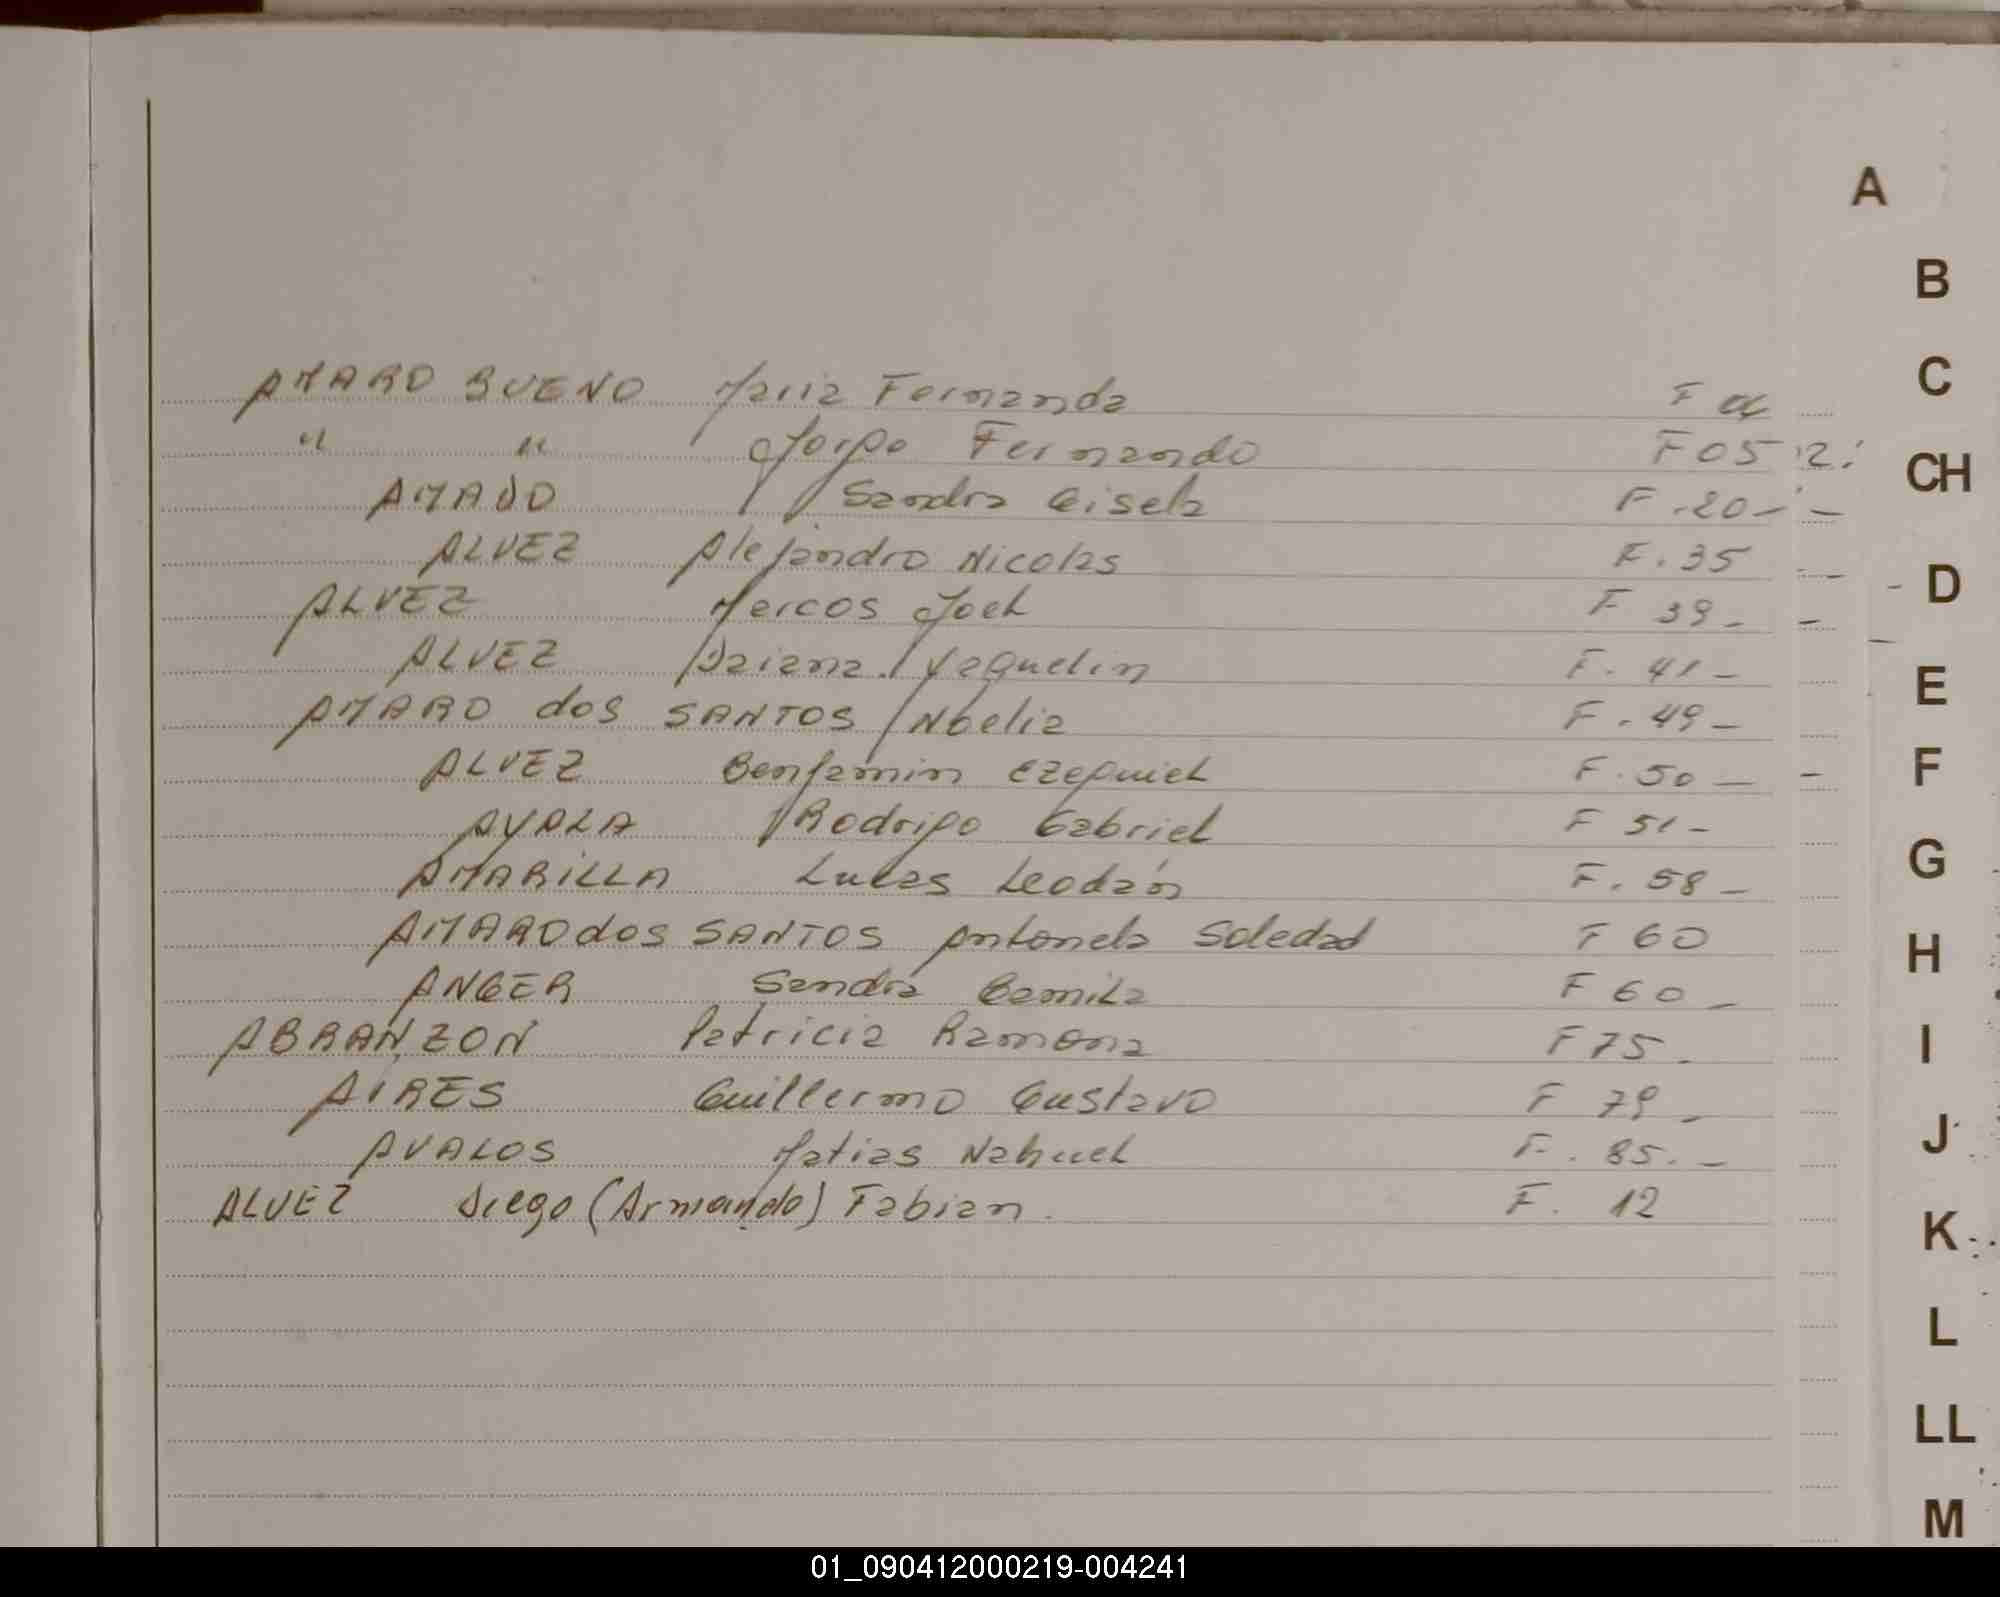 AMARO BUENO Maria Fernanda F 04
" " Jorge Fernando F 05
AMADO Sandra Gisela F. 20-
ALVEZ Alejandro Nicolas F. 35
ALVEZ Marcos Joel F 39-
ALVEZ Daiana Yaquelin F. 41-
AMARO dos SANTOS Noelia F. 49-
ALVEZ Benjamin Ezequiel F. 50-
AYALA Rodrigo Gabriel F 51-
AMARILLA Lucas Leodán F. 58-
AMARO dos SANTOS Antonela Soledad F 60
ANGER Sandra Camila F 60-
ABRANZON Patricia Ramona F 75-
AIRES Guillermo Gustavo F 79-
AVALOS Matias Nahuel F. 85.-
ALVEZ Diego (Armando) Fabian. F. 12
A
B
C
CH
D
E
F
G
H
I
J
K
L
LL
M
01_090412000219-004241